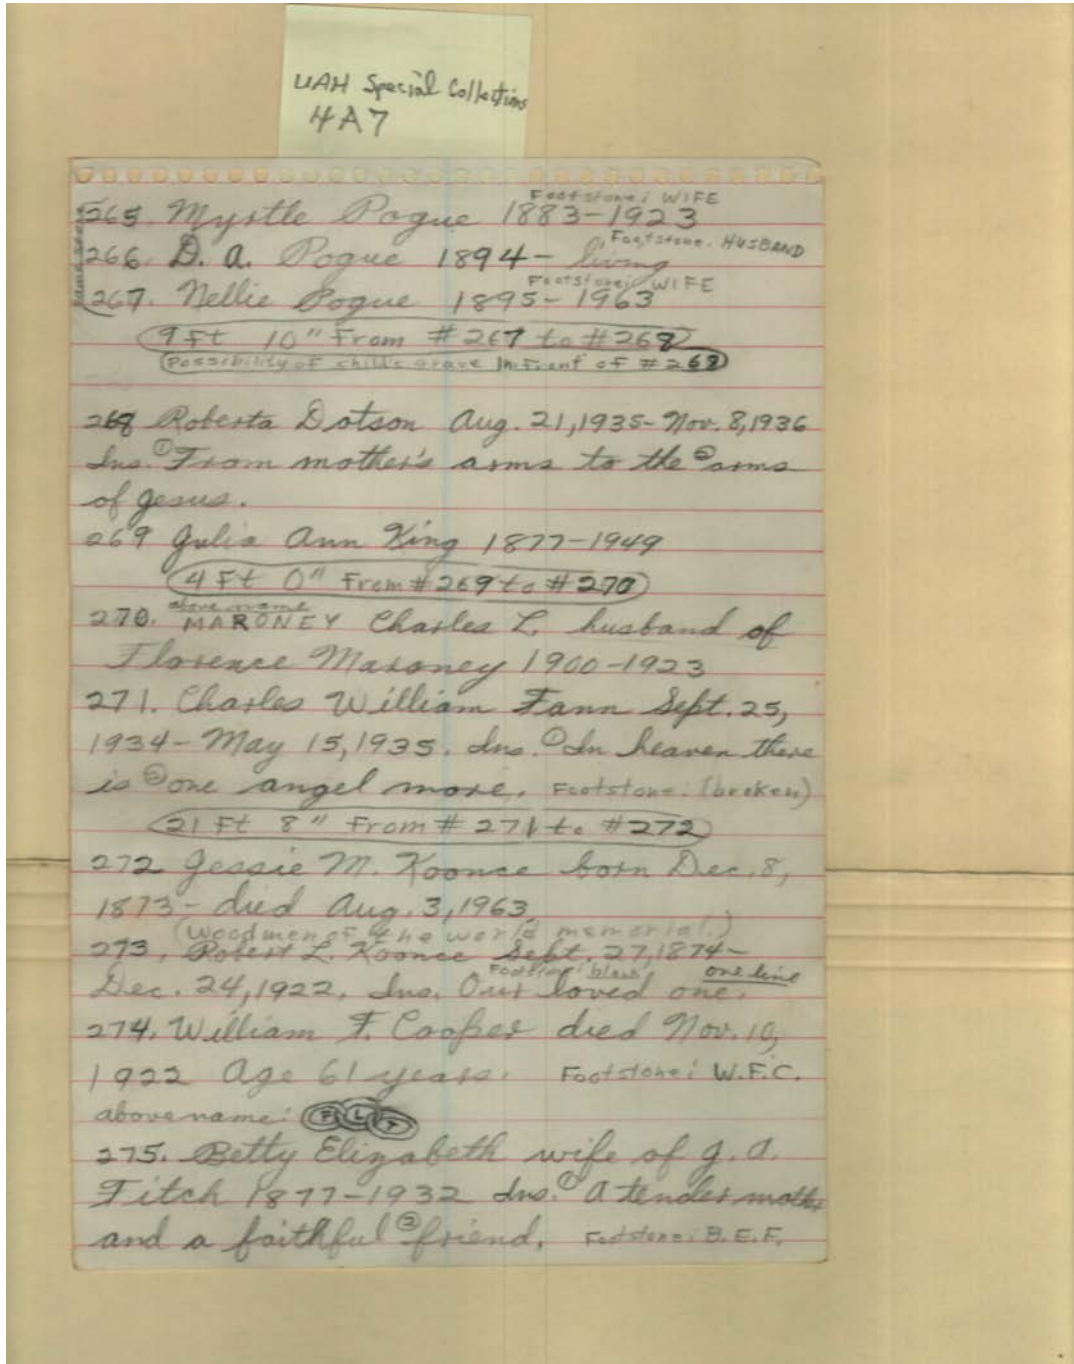 UAH Special Collections
4A7
Footstone: WIFE
265. Myrtle Pogue 1883-1923
Footstone: HUSBAND
266. D. A. Pogue 1894- living
Footstone: WIFE
267. Nellie Pogue 1895-1963
same stone
9 Ft 10" From #267 to #268
Possibility of child's grave In Front of #268
268 Roberta Dotson Aug. 21, 1935-Nov. 8, 1936
Ins. ① From mother's arms to the ② arms
of Jesus.
269 Julia Ann King 1877-1949
4 Ft 0" From #269 to #270
above name
270. MARONEY Charles L. husband of
Florence Maroney 1900-1923
271. Charles William Fann Sept. 25,
1934- May 15, 1935. Ins. ① In heaven there
is ② one angel more. Footstone: (broken)
21 Ft 8" From #271 to #272
272 Jessie M. Koonce born Dec. 8,
1873- died Aug. 3, 1963
(Woodmen of the world memorial.)
273. Robert L. Koonce Sept. 27, 1874-
Footstone: blank one line
Dec. 24, 1922. Ins. Our loved one.
274. William F. Cooper died Nov. 10,
1922 Age 61 years. Footstone: W.F.C.
above name: F L T
275. Betty Elizabeth wife of J. A.
Fitch 1877-1932 Ins. ① A tender mother
and a faithful ② friend. Footstone: B.E.F.